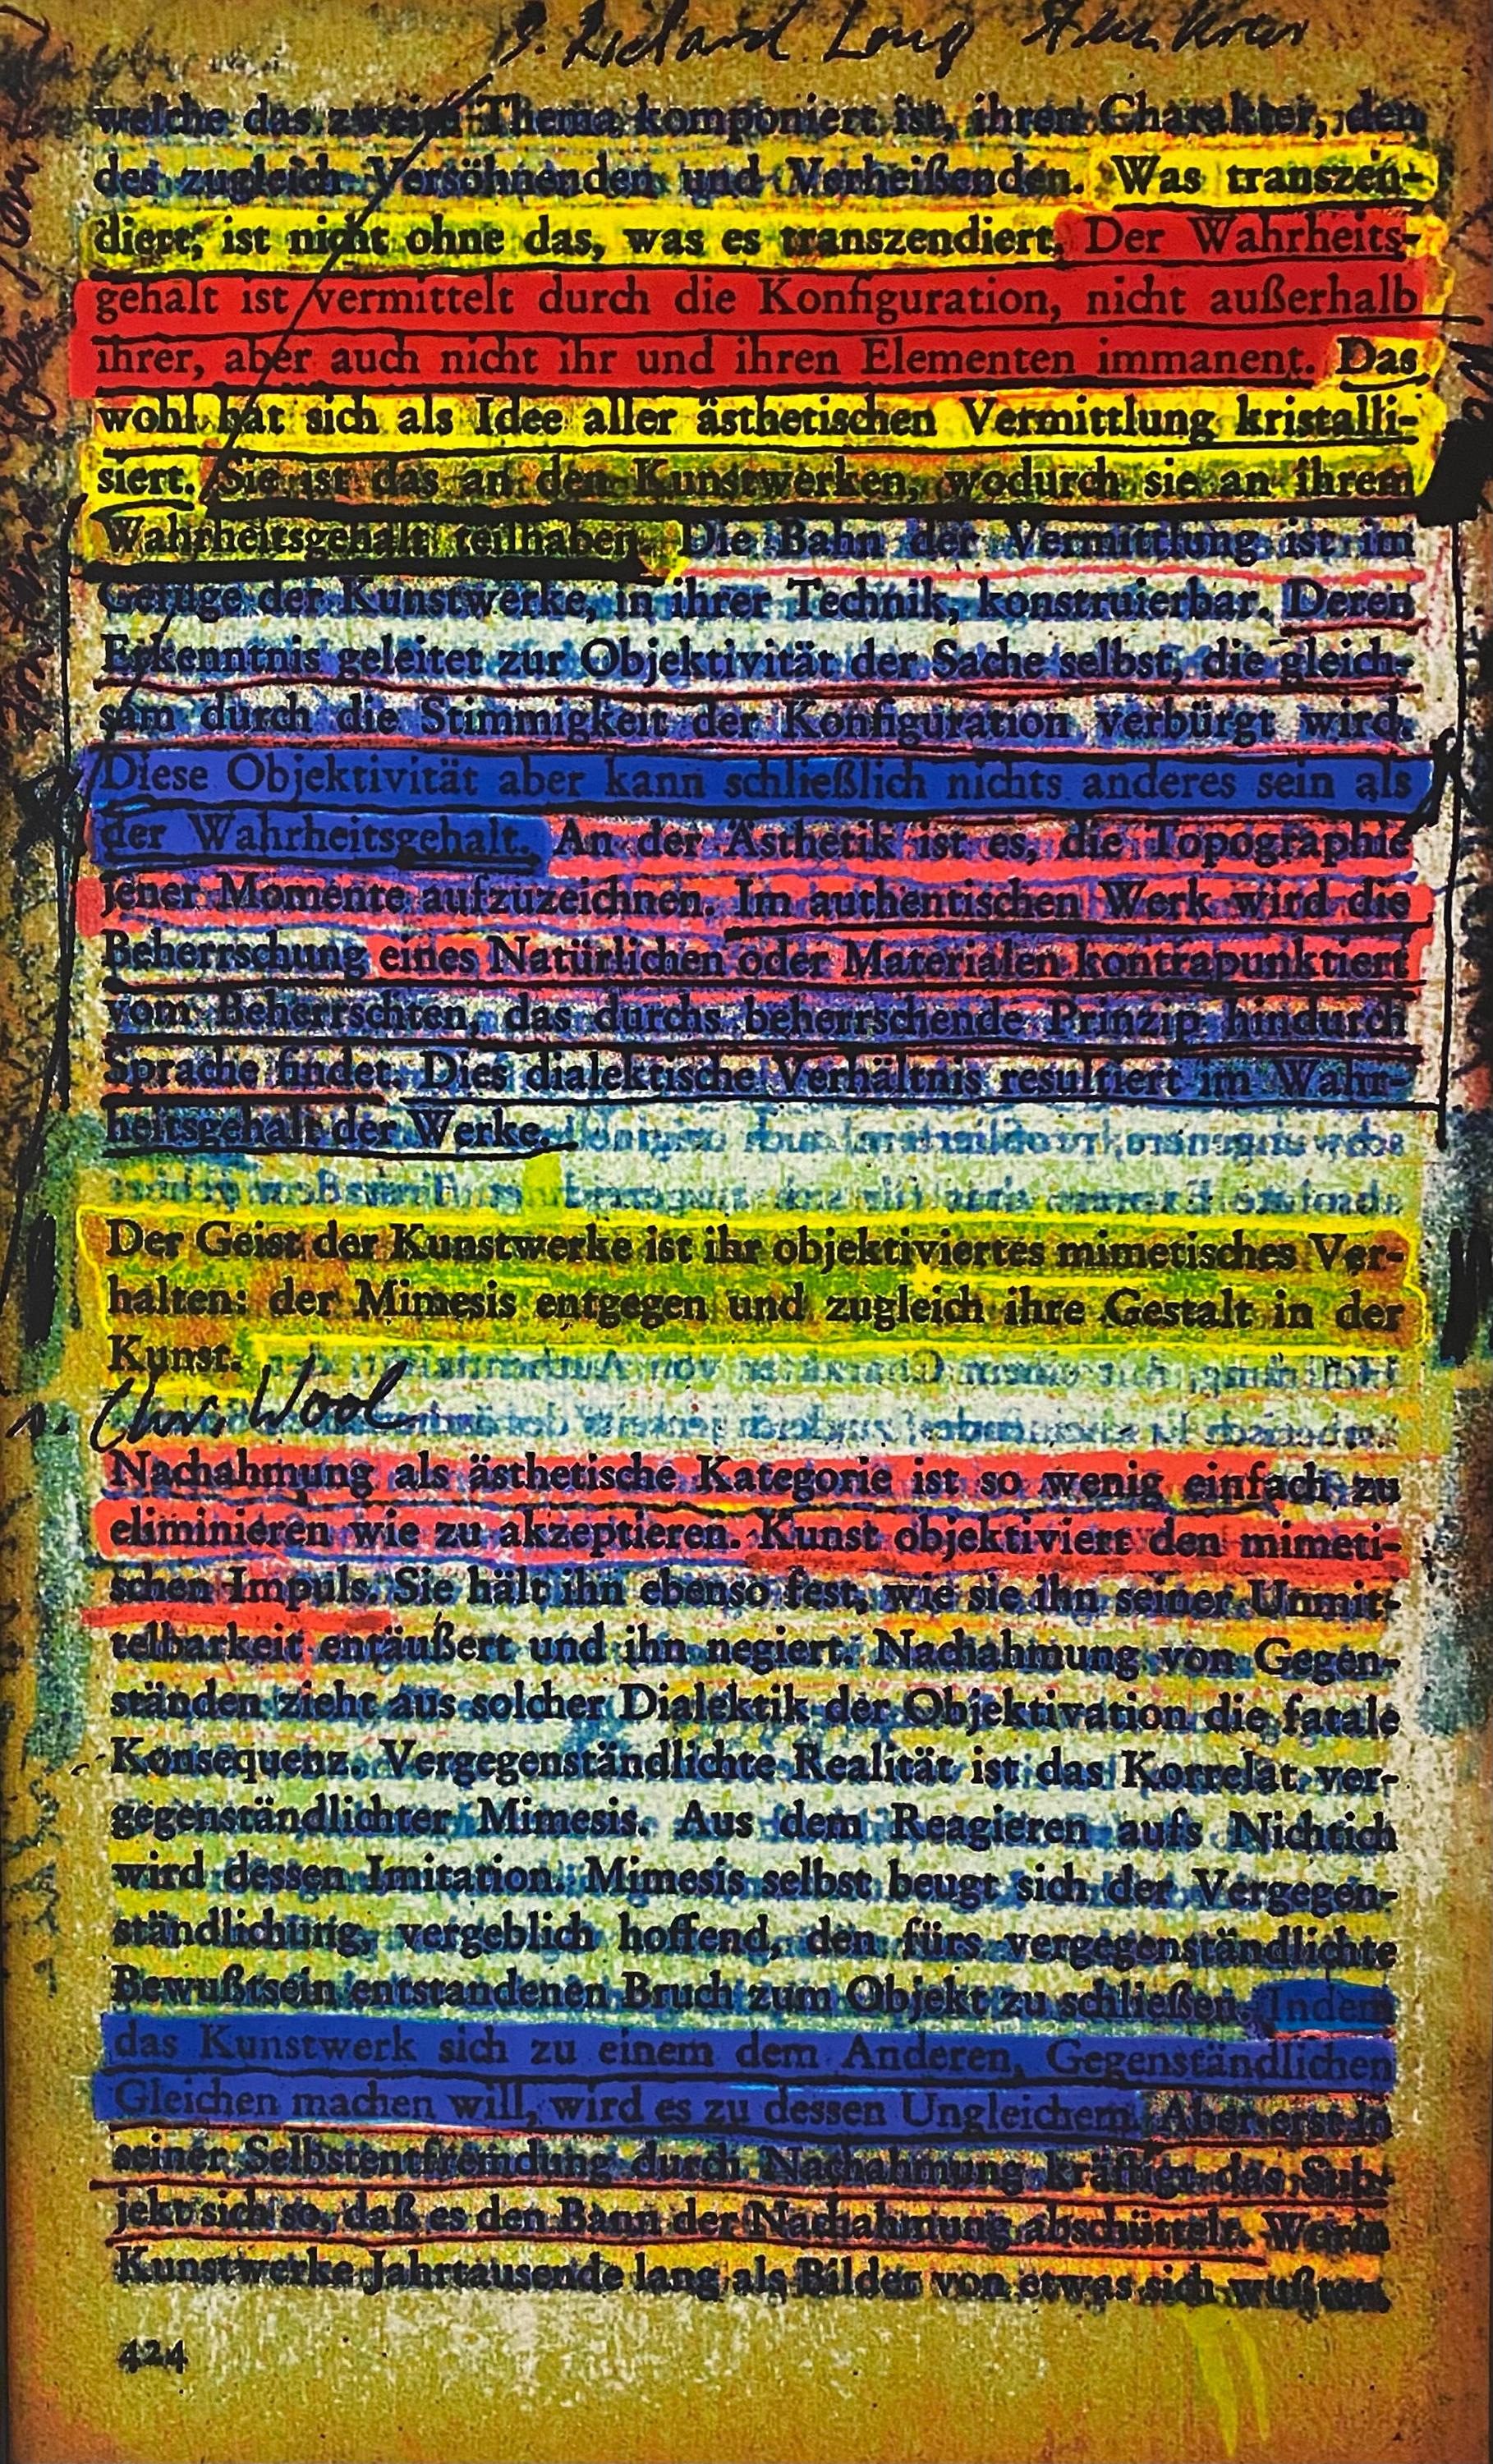 s. Richard Long
welche das zweite Thema komponiert ist, ihren Charakter, den
des zugleich Versöhnenden und Verheißenden. Was transzen-
diert, ist nicht ohne das, was es transzendiert. Der Wahrheits-
gehalt ist vermittelt durch die Konfiguration, nicht außerhalb
ihrer, aber auch nicht ihr und ihren Elementen immanent. Das
wohl hat sich als Idee aller ästhetischen Vermittlung kristalli-
siert. Sie ist das an den Kunstwerken, wodurch sie an ihrem
Wahrheitsgehalt teilhaben. Die Bahn der Vermittlung ist im
Gefüge der Kunstwerke, in ihrer Technik, konstruierbar. Deren
Erkenntnis geleitet zur Objektivität der Sache selbst, die gleich-
sam durch die Stimmigkeit der Konfiguration verbürgt wird.
Diese Objektivität aber kann schließlich nichts anderes sein als
der Wahrheitsgehalt. An der Ästhetik ist es, die Topographie
jener Momente aufzuzeichnen. Im authentischen Werk wird die
Beherrschung eines Natürlichen oder Materialen kontrapunktiert
vom Beherrschten, das durchs beherrschende Prinzip hindurch
Sprache findet. Dies dialektische Verhältnis resultiert im Wahr-
heitsgehalt der Werke.
Der Geist der Kunstwerke ist ihr objektiviertes mimetisches Ver-
halten: der Mimesis entgegen und zugleich ihre Gestalt in der
Kunst.
s. Chr. Wool
Nachahmung als ästhetische Kategorie ist so wenig einfach zu
eliminieren wie zu akzeptieren. Kunst objektiviert den mimeti-
schen Impuls. Sie hält ihn ebenso fest, wie sie ihn seiner Unmit-
telbarkeit entäußert und ihn negiert. Nachahmung von Gegen-
ständen zieht aus solcher Dialektik der Objektivation die fatale
Konsequenz. Vergegenständlichte Realität ist das Korrelat ver-
gegenständlichter Mimesis. Aus dem Reagieren aufs Nichtich
wird dessen Imitation. Mimesis selbst beugt sich der Vergegen-
ständlichung, vergeblich hoffend, den fürs vergegenständlichte
Bewußtsein entstandenen Bruch zum Objekt zu schließen. Indem
das Kunstwerk sich zu einem dem Anderen, Gegenständlichen
Gleichen machen will, wird es zu dessen Ungleichem. Aber erst in
seiner Selbstentfremdung durch Nachahmung kräftigt das Sub-
jekt sich so, daß es den Bann der Nachahmung abschüttelt. Worin
Kunstwerke Jahrtausende lang als Bilder von etwas sich wußten
424